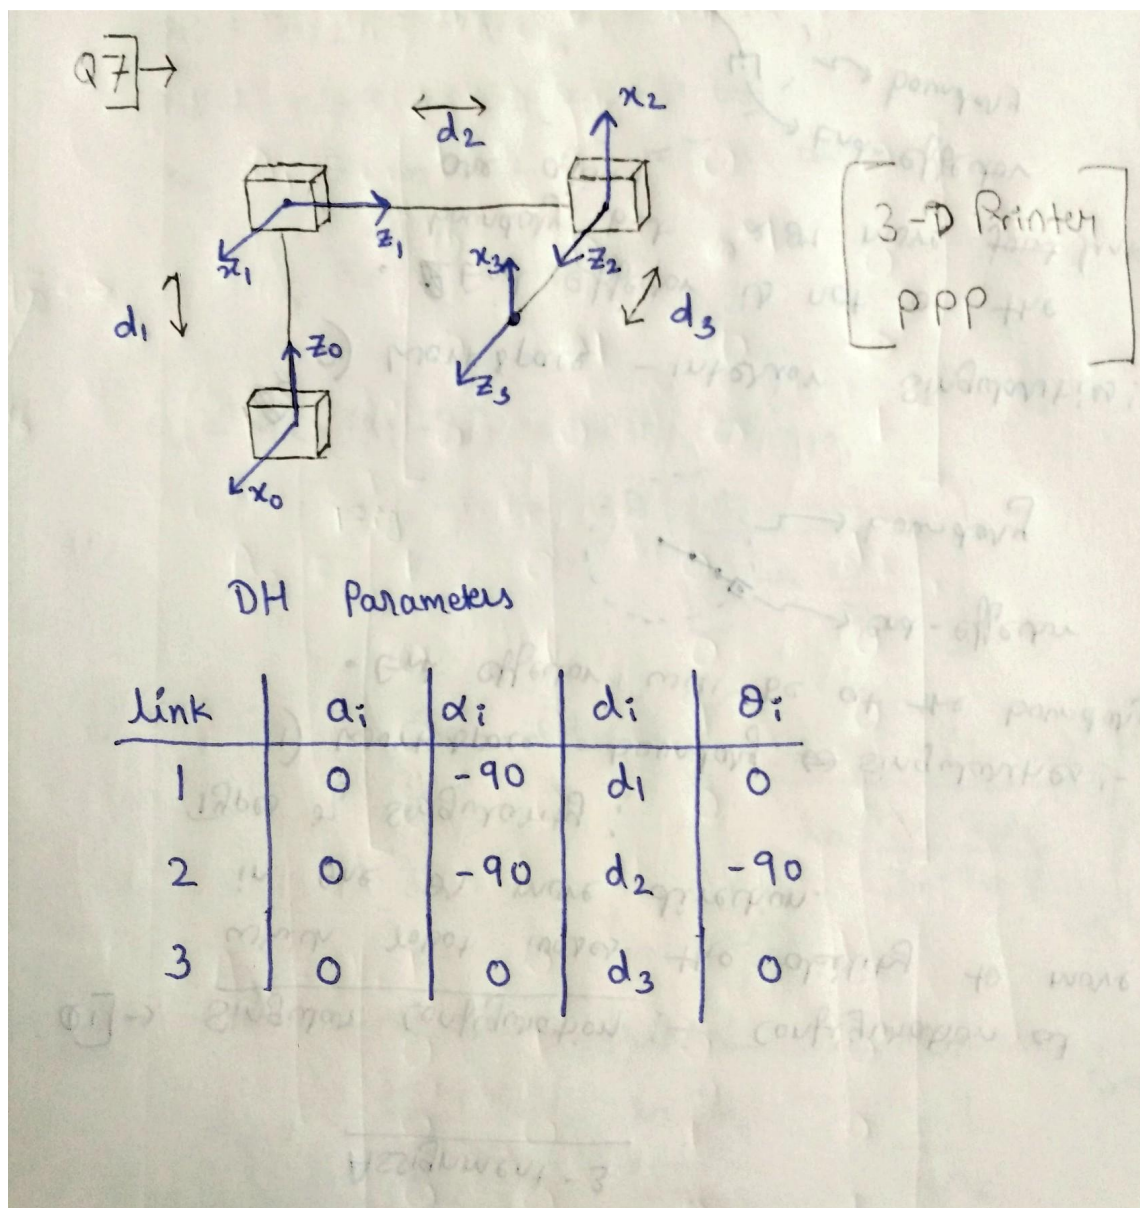 Q7]→
x2
d2
z1
x1
x3
z2
d1
d3
z0
z3
x0
[3-D Printer
PPP]
DH Parameters
Link | ai | αi | di | θi
1 | 0 | -90 | d1 | 0
2 | 0 | -90 | d2 | -90
3 | 0 | 0 | d3 | 0